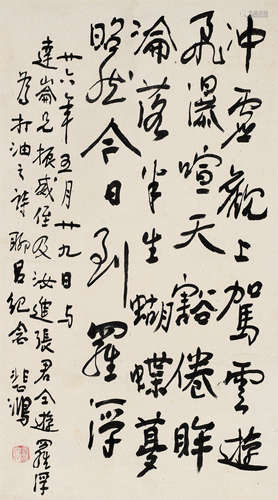 沖虛觀上駕雲遊
飛瀑喧天豁倦眸
淪落半生蝴蝶夢
昭然今日到羅浮
廿六年五月廿九日與
達崙兄振威侄及汝進張君仝遊羅浮
為打油之詩聊以紀念 悲鴻